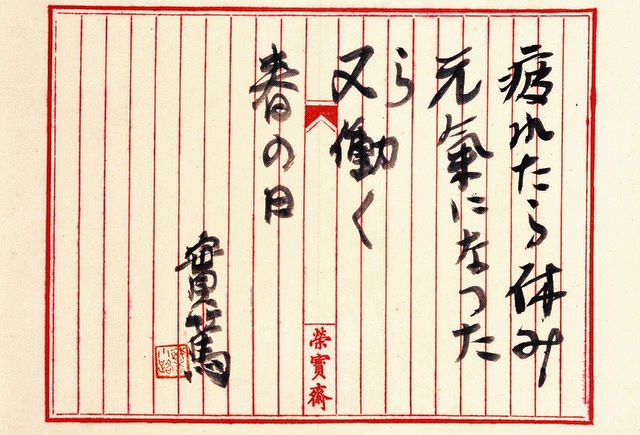 疲れたら休み
元氣になった
ら
又働く
春の日
實篤
榮寶齋